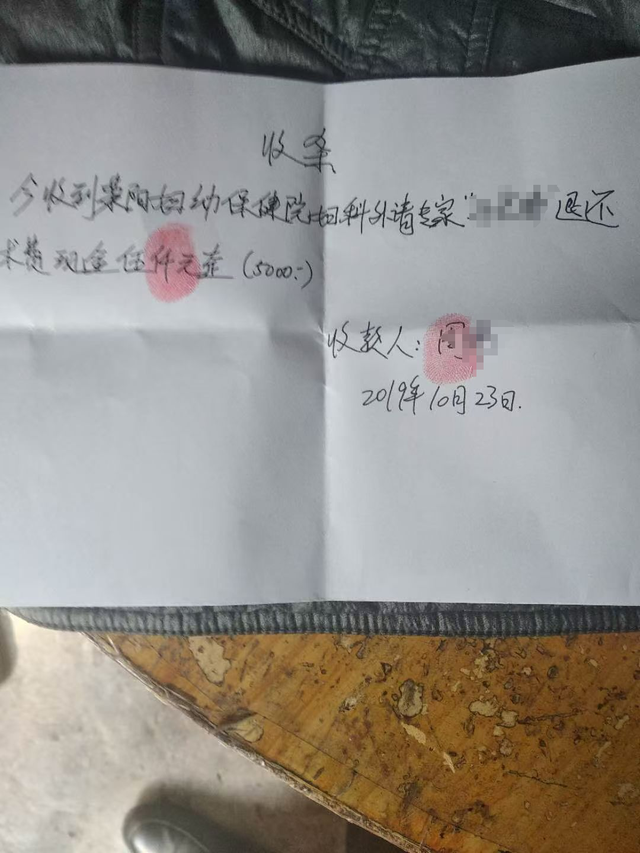 收条
今收到荥阳妇幼保健院妇科外请专家“ ”退还
术费现金伍仟元整(5000:-)
收款人:闫
2019年10月23日.